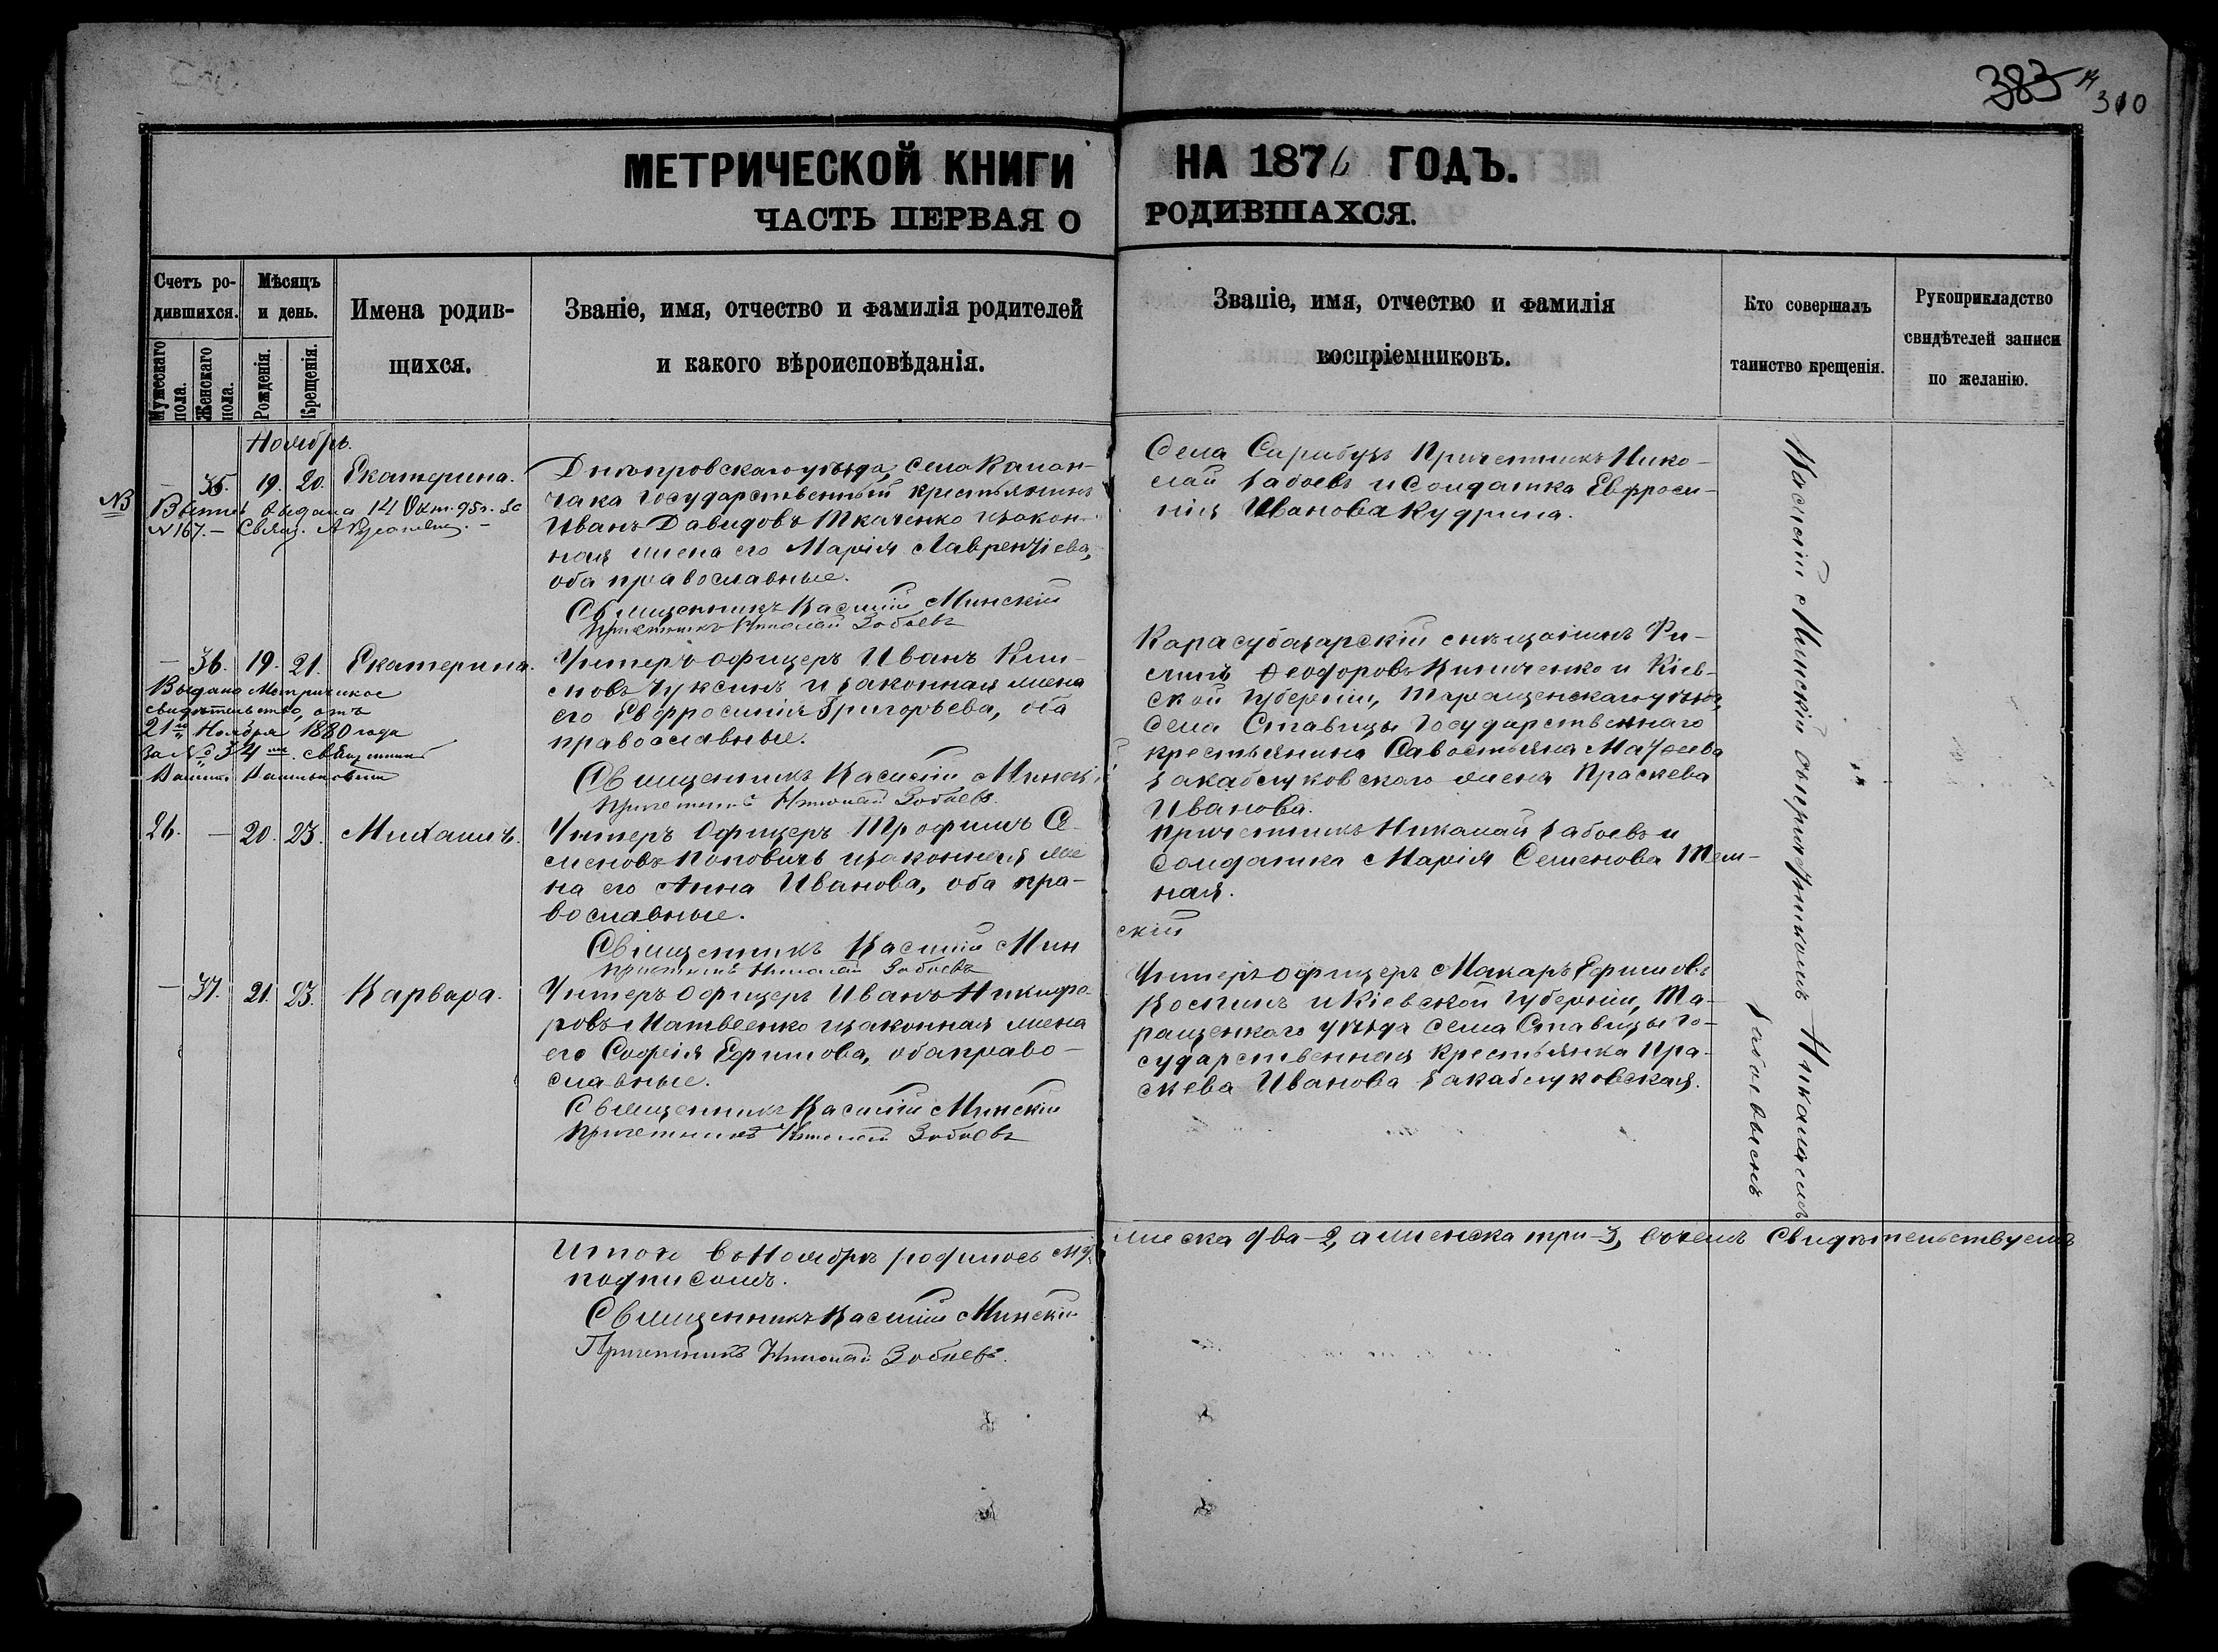 383 310
МЕТРИЧЕСКОЙ КНИГИ НА 1876 ГОДЪ.
ЧАСТЬ ПЕРВАЯ О РОДИВШАХСЯ.
Счетъ родившихся.
Мужескаго пола.
Женскаго пола.
Мѣсяцъ и день.
Рожденія.
Крещенія.
Имена родив-
шихся.
Званіе, имя, отчество и фамилія родителей
и какого вѣроисповѣданія.
Званіе, имя, отчество и фамилія
воспріемниковъ.
Кто совершалъ
таинство крещенія.
Рукоприкладство
свидѣтелей записи
по желанію.
Ноябрь.
— 35. 19. 20. Екатерина.
NB
выдана 14 Окт. 95 г. за
№ 167. — Свящ.
Днѣпровскаго уѣзда, села Калан-
чака Государственный крестьянинъ
Иванъ Давидовъ Ткаченко и закон-
ная жена его Марія Лаврентіева,
оба православные.
Священникъ Василій Минскій
Причетникъ Николай Забоевъ
Села Сарабузъ Причетникъ Нико-
лай Забоевъ и Солдатка Евфроси-
нія Иванова Кудрина.
— 36. 19. 21. Екатерина.
Выдано Метрическое
свидѣтельство, отъ
21го Ноября 1880 года
за № 34 мъ. Священникъ
Унтеръ офицеръ Иванъ Кли-
мовъ Чуксинъ и законная жена
его Евфросинія Григорьева, оба
православные.
Священникъ Василій Минскій
Причетникъ Николай Забоевъ.
Карасубазарскій мѣщанинъ Фи-
липъ Ѳеодоровъ Кириченко и Кіев-
ской Губерніи, Таращенскаго уѣзда,
Села Ставищъ Государственнаго
крестьянина Савостьяна Матѳеева
Закаблуковского жена Праскева
Иванова.
26. — 20. 23. Михаилъ.
Унтеръ Офицеръ Трофимъ Се-
меновъ Поповичъ и законная же
на его Анна Иванова, оба пра-
вославные.
Священникъ Василій Мин
скій
Причетникъ Николай Забоевъ
Причетникъ Николай Забоевъ и
Солдатка Марія Семенова Тем-
ная.
— 37. 21. 23. Варвара.
Унтеръ офицеръ Иванъ Никифо-
ровъ Матвеенко и законная жена
его Софія Ефимова, оба право-
славные.
Священникъ Василій Минскій
Причетникъ Николай Забоевъ
Унтеръ офицеръ Макаръ Ефимовъ
Костинъ и Кіевской Губерніи, Та-
ращенкаго уѣзда Села Ставищы Го-
сударственная Крестьянка Пра-
скева Иванова Закаблуковская.
Василій Минскій съ причетникомъ Николаемъ
Забоевымъ
Итого въ Ноябрѣ родилось муж
жеска два-2, а женска три-3, въ чемъ Свидѣтельствуемъ
подписомъ.
Священникъ Василій Минскій
Причетникъ Николай Забоевъ.